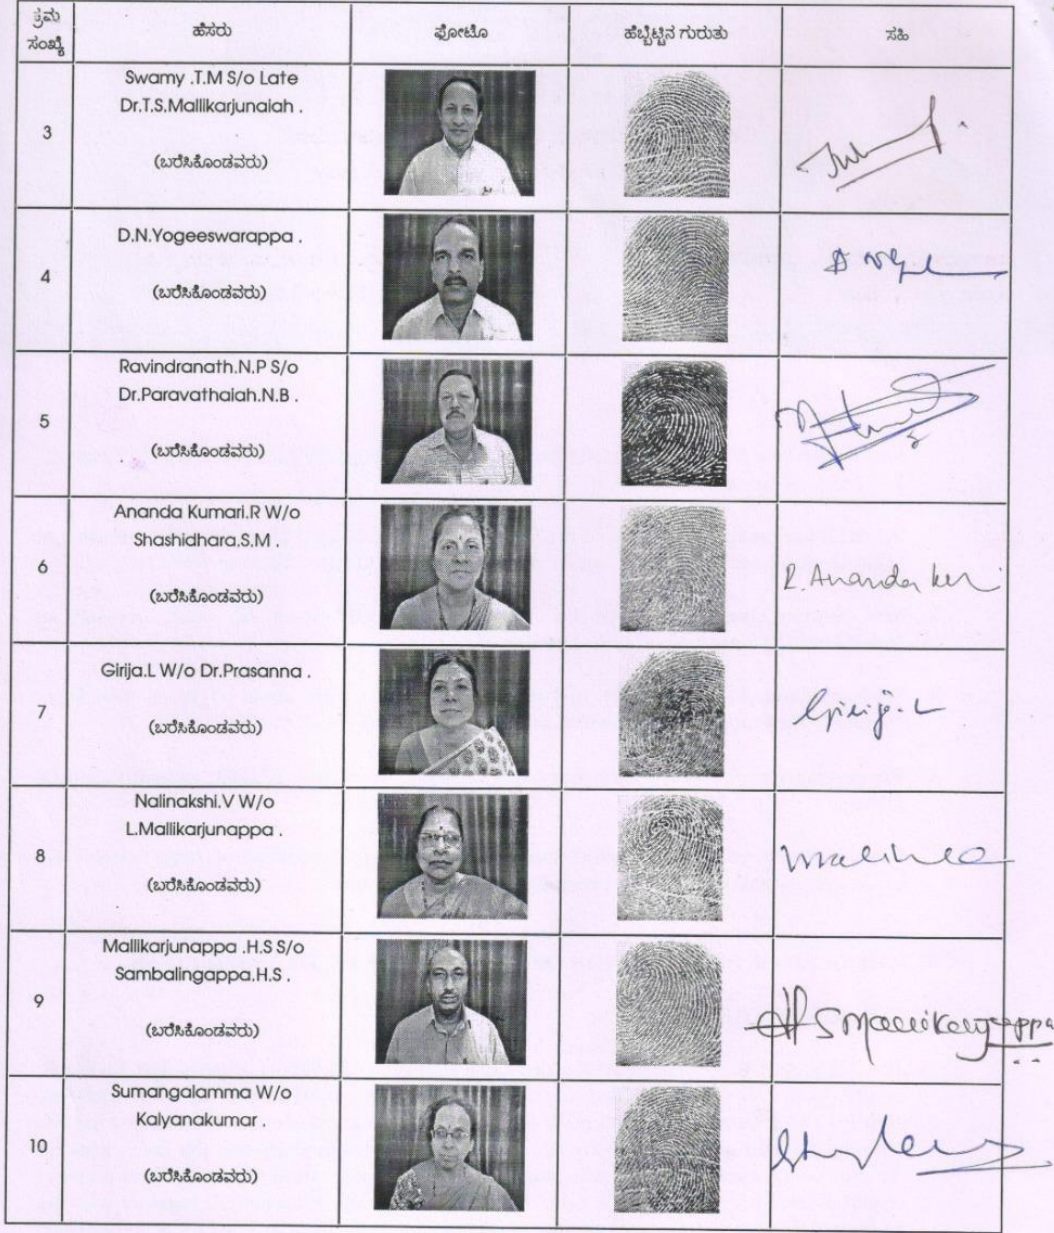 ಕ್ರಮ ಸಂಖ್ಯೆ ಹೆಸರು ಫೋಟೊ ಹೆಬ್ಬೆಟ್ಟಿನ ಗುರುತು ಸಹಿ
Swamy .T.M S/o Late
Dr.T.S.Mallikarjunaiah .
3
(ಬರೆಸಿಕೊಂಡವರು)
D.N.Yogeeswarappa .
4
(ಬರೆಸಿಕೊಂಡವರು)
Ravindranath.N.P S/o
Dr.Paravathaiah.N.B .
5
(ಬರೆಸಿಕೊಂಡವರು)
Ananda Kumari.R W/o
Shashidhara.S.M .
6
(ಬರೆಸಿಕೊಂಡವರು)
R. Ananda
Girija.L W/o Dr.Prasanna .
7
(ಬರೆಸಿಕೊಂಡವರು)
Girija. L
Nalinakshi.V W/o
L.Mallikarjunappa .
8
(ಬರೆಸಿಕೊಂಡವರು)
Mallikarjunappa .H.S S/o
Sambalingappa.H.S .
9
(ಬರೆಸಿಕೊಂಡವರು)
Sumangalamma W/o
Kalyanakumar .
10
(ಬರೆಸಿಕೊಂಡವರು)